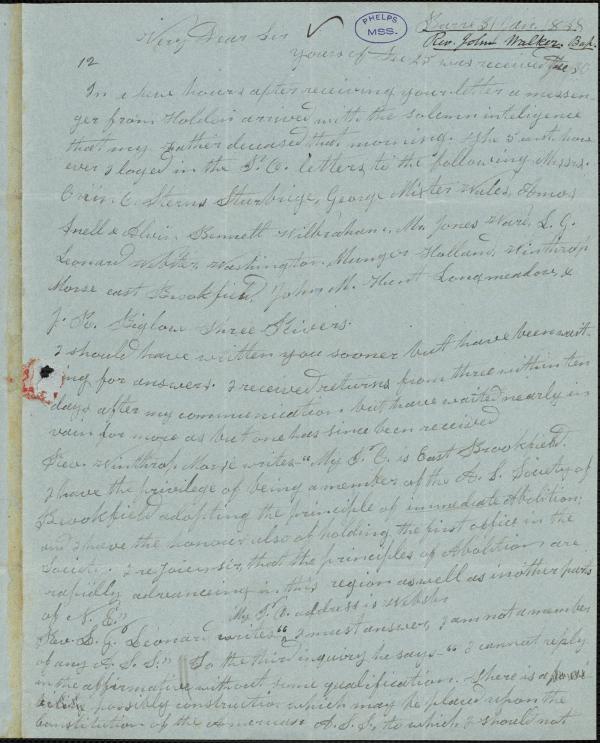 Barre 31 Jan. 1838
PHELPS
MSS.
Rev. John Walker. Bap.
Very Dear Sir
Yours of Dec 25 was received Dec 30
12
In a few hours after receiving your letter a messen-
ger from Holden arrived with the solemn inteligence
that my Father deceased that morning. The 5 inst. how
ever I loged in the P.O. letters to the following Messrs.
Orin O. Sterns Sturbrige, George Mister Wales, Amos
Snell & Alvin Bennett Wilbraham, Mr. Jones Ware, L. G.
Leonard Webster, Washington Munger Holland, Winthrop
Morse east Brookfield, John M. Hunt Longmeadow, &
J. H. Biglow Three Rivers.
I should have written you sooner but have been wait-
ing for answers. I received returns from three within ten
days after my communication but have waited nearly in
vain for more as but one has since been received
Rev. Winthrop Morse writes "My P. O. is East Brookfield.
I have the privilege of being a member of the A. S. Society of
Brookfield adopting the principle of immediate Abolition;
and I have the honour also of holding the first office in the
Society. I rejoice, sir, that the principles of Abolition are
rapidly advancing in this region as well as in other parts
of N. E."
My P.O. address is Webster
Rev. L. G. Leonard writes "I must answer, I am not a member
of any A. S. S." To the third inquiry he says "I cannot reply
in the affirmative without some qualification. There is a
possibly construction which may be placed upon the
Constitution of the American A. S. S. to which I should not